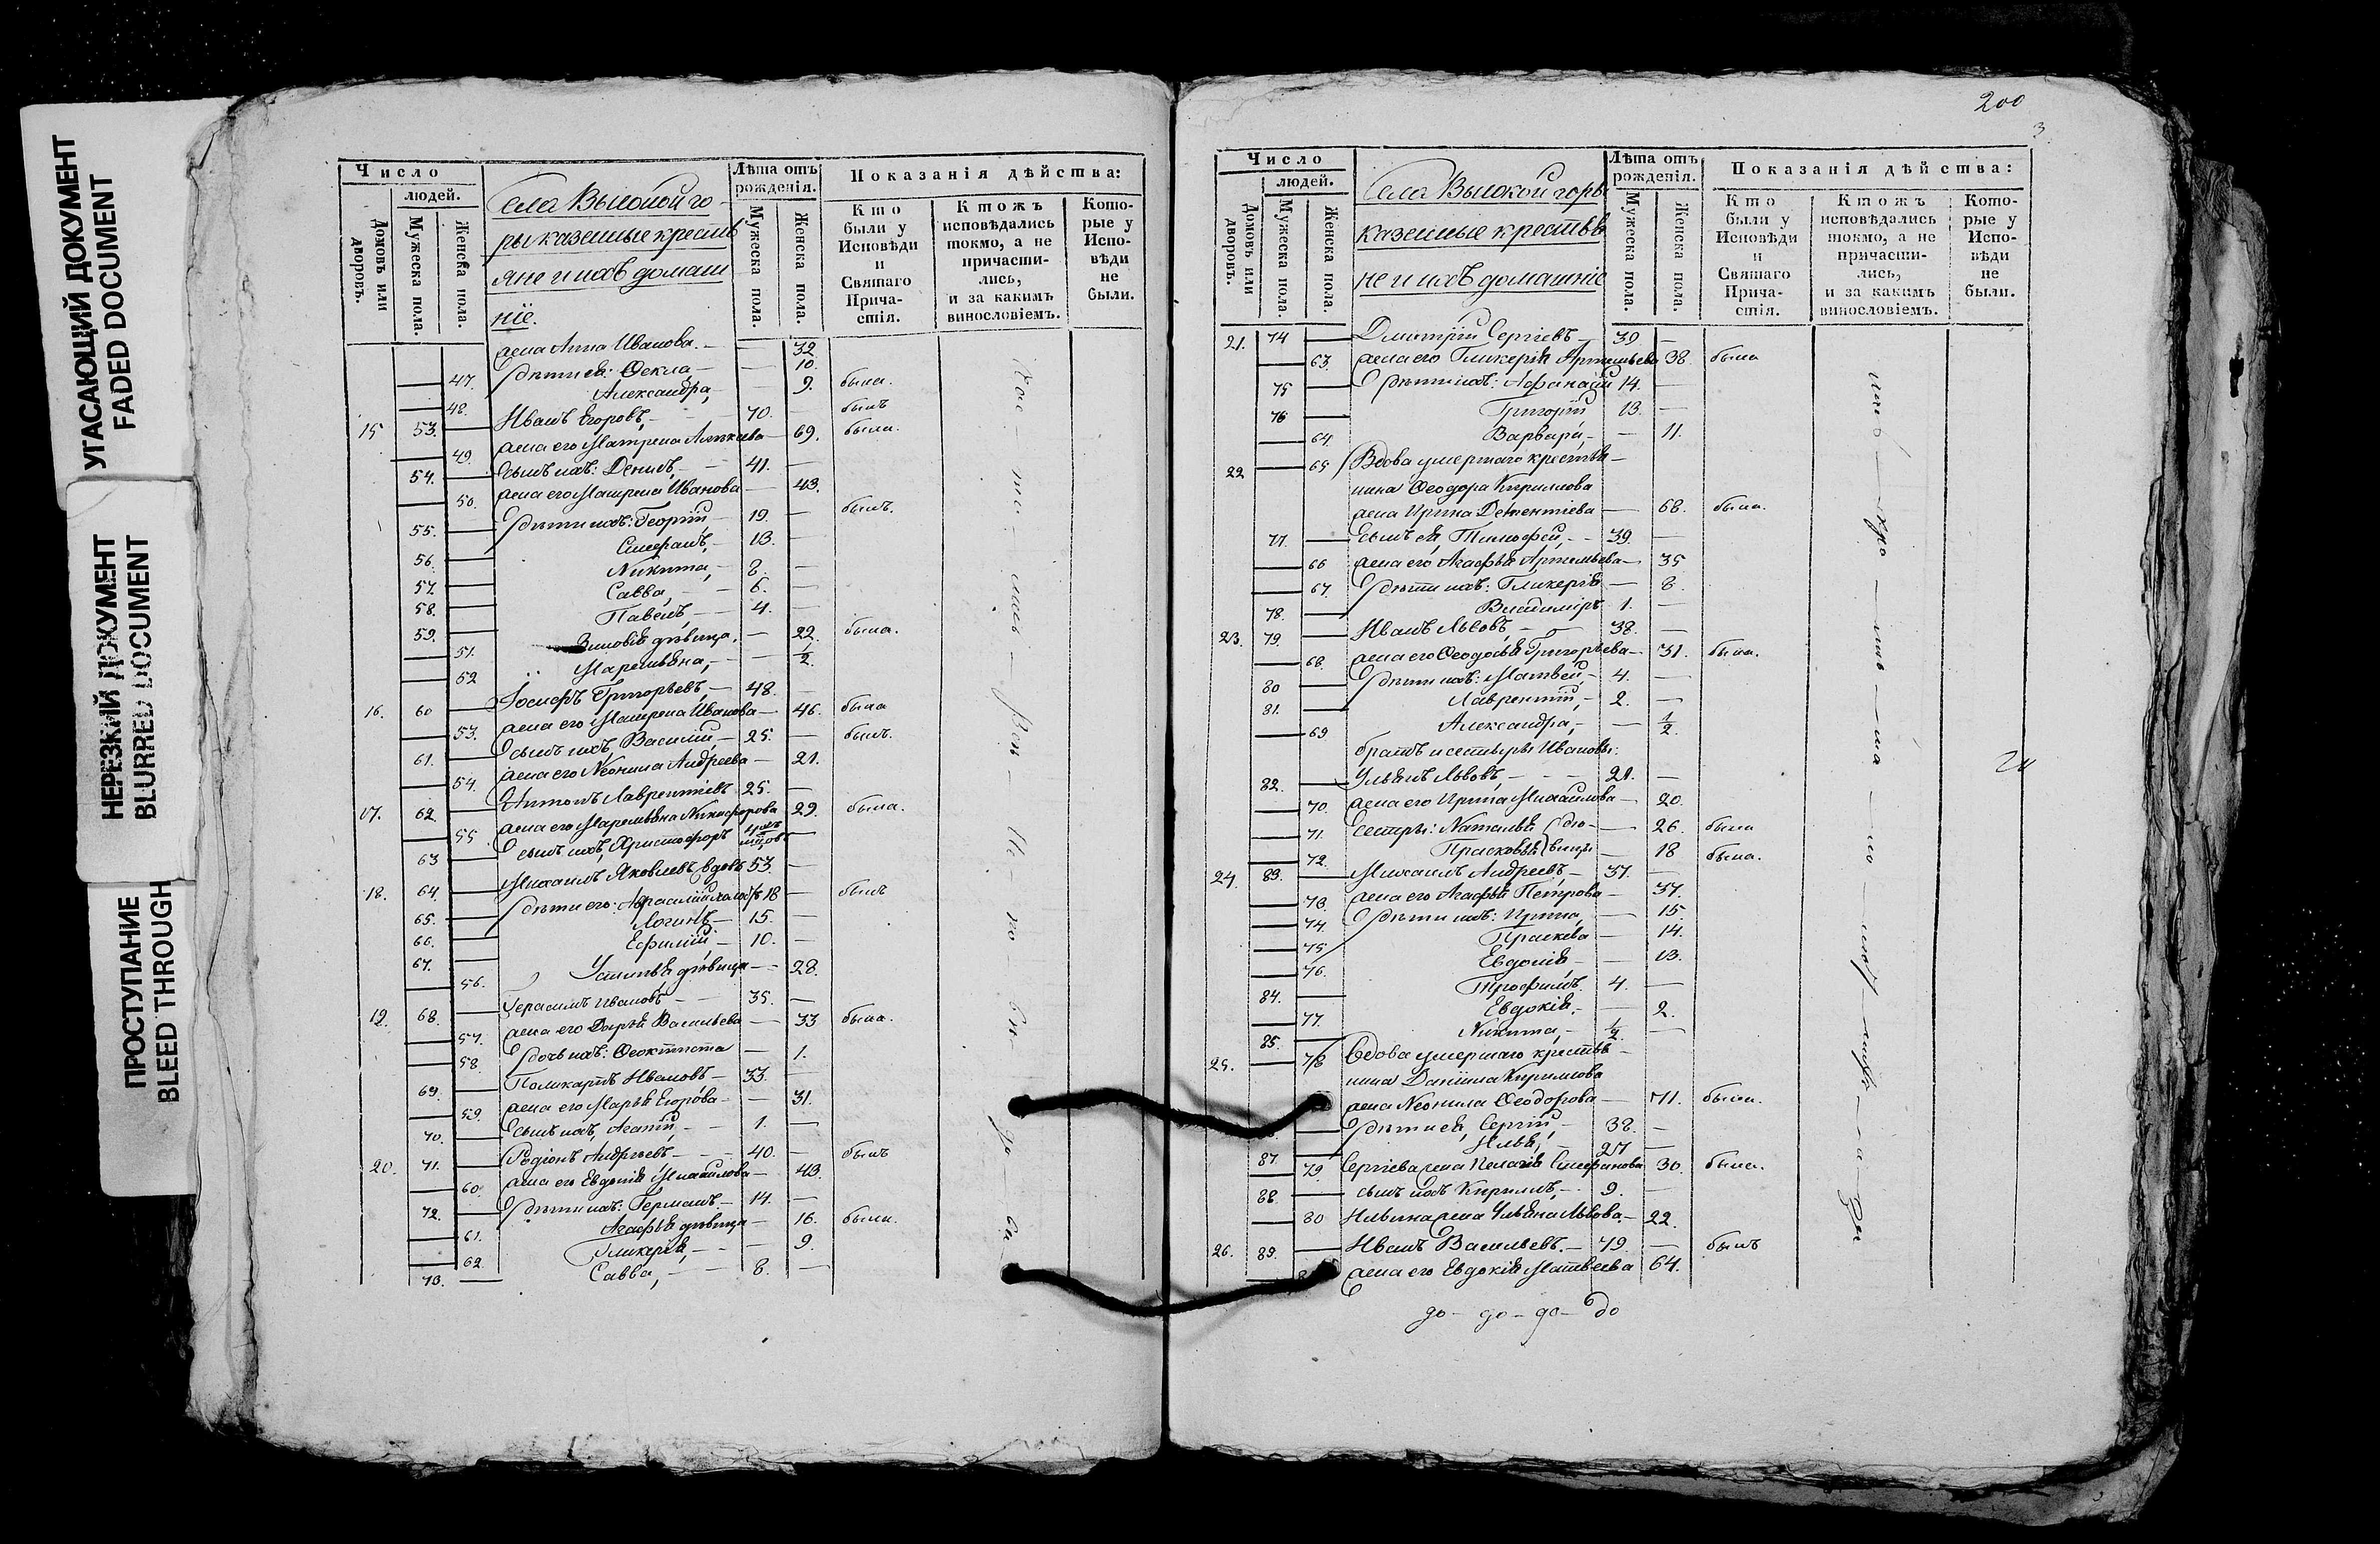 УГАСАЮЩИЙ ДОКУМЕНТ
FADED DOCUMENT
НЕРЕЗКИЙ ДОКУМЕНТ
BLURRED DOCUMENT
ПРОСТУПАНИЕ
BLEED THROUGH
Число
людей.
Домовъ или дворовъ.
Мужеска пола.
Женска пола.
Села Высокой го-
ры казенные кресть
яне и ихъ домаш
ніе.
Лѣта отъ рожденія.
Мужеска пола.
Женска пола.
Показанія дѣйства:
Кто были у Исповѣди и Святаго Прича-стія.
Ктожъ исповѣдались токмо, а не причасти-лись, и за какимъ винословіемъ.
Кото-рые у Испо-вѣди не были.
жена Анна Иванова. 32.
47. дѣти ея: Ѳекла 10.
48. Александра, 9. была.
15 53. Иванъ Егоровъ, 70. былъ
49. жена его Матрена 69. была.
54. сынъ ихъ: Денисъ, 41.
50. жена его Матрена Иванова 43.
55. дѣти ихъ: Георгій 19. былъ.
56. Стефанъ, 13.
57. Никита, 8.
58. Савва, 6.
59. Павелъ 4.
51. Зиновія дѣвица. 22. была.
52 Маремьяна, 1/2.
16. 60 Іосифъ Григорьевъ, 48.
53. жена его Матрена Иванова 46. была
61. сынъ ихъ, Василій, 25. былъ.
54. жена его Неонила Андреева 21.
17. 62. Антонъ Лаврентіевъ 25.
55 жена его Маремьяна Никифорова 29. была.
63 сынъ ихъ, Христофоръ
18. 64. Михаилъ Яковлевъ вдовъ 53.
65. дѣти его: 18 былъ
66. Логинъ 15.
67. Ефимій 10.
56. Устинья дѣвица 28.
19. 68. Герасимъ Ивановъ 35.
57. жена его Дарья Васильева 33 была.
58. дочь ихъ: Ѳеоктиста 1.
69. Поликарпъ Ивановъ 33.
59. жена его Марья Егорова 31.
70. сынъ ихъ, Агапій, 1.
20. 71. Родіонъ Андреевъ 40. былъ
60. жена его Евдокія Михайлова 43.
72. дѣти ихъ: Германъ 14.
61. Агафья дѣвица 16. была.
62. Гликерія, 9.
73. Савва, 8.
200
3
Число
людей.
Домовъ или дворовъ.
Мужеска пола.
Женска пола.
Села Высокой горы
казенные крестья
не и ихъ домашніе
Лѣта отъ рожденія.
Мужеска пола.
Женска пола.
Показанія дѣйства:
Кто были у Исповѣди и Святаго Прича-стія.
Ктожъ исповѣдались токмо, а не причасти-лись, и за какимъ винословіемъ.
Кото-рые у Испо-вѣди не были.
21. 74 Дмитрій Сергіевъ 39.
63. жена его Гликерія Артемьева 38. была
75 дѣти ихъ: Афанасій 14.
76 Григорій 13.
64. Варвара, 11.
22 65 Вдова умершаго крестья-
нина Ѳеодора Кирилова
жена Ирина Дементіева 68. была.
77. сынъ ея Тимофей, 39.
66 жена его Агафья Артемьева 35
67. дѣти ихъ: Гликерія 8.
78. Владиміръ 1.
23. 79. Иванъ Львовъ 38.
68. жена его Ѳеодосья Григорьева 31. была.
80 дѣти ихъ: Матвей, 4.
81. Лаврентій, 2.
69 Александра, 1/2.
братъ и сестры Ивановы:
82. Ульянъ Львовъ, 21.
70. жена его Ирина Михайлова 20.
71. сестры: Наталья дѣ- 26. была
72. Прасковья вицы 18 была.
24. 83. Михаилъ Андреевъ 37.
73. жена его Агафья Петрова 37.
74. дѣти ихъ: Ирина, 15.
75 Праскева 14.
76. Евдокія 13.
84. Трофимъ 4.
77. Евдокія 2.
85. Никита, 1/2.
25. 78 Вдова умершаго крестья-
нина Даніила Кирилова
жена Неонила Ѳеодорова 71. была.
дѣти ея, Сергій, 38.
87. Илья, 27
79. Сергіева жена Пелагія Стефанова 30. была.
88. сынъ ихъ Кирилъ, 9.
80 Ильина жена Ульяна Львова 22.
26. 89. Иванъ Васильевъ. 79. былъ
жена его Евдокія Матвеева 64.